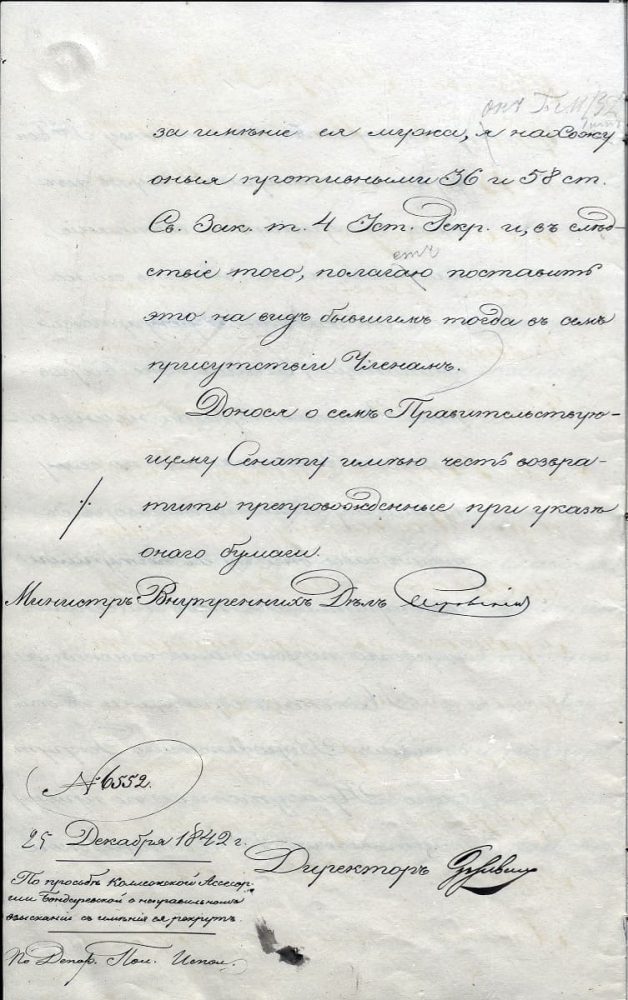 за имѣніе ея мужа, я нахожу
оныя противными 36 и 58 ст.
Св. Зак. т. 4 Уст. Рекр. и, въ слѣд-
ствіе того, полагаю поставить
это на видъ бывшимъ тогда въ семъ
присутствіи Членамъ.
Донося о семъ Правительствую-
щему Сенату имѣю честь возвра-
тить препровожденные при указѣ
онаго бумаги.
Министръ Внутреннихъ Дѣлъ Перовскій
№ 6552.
25 Декабря 1842 г.
Директоръ
По просьбѣ Коллежской Асессор-
ши Бондаревской о неправильномъ
взысканіи съ имѣнія ея рекрутъ.
По Депар. Пол. Испол.